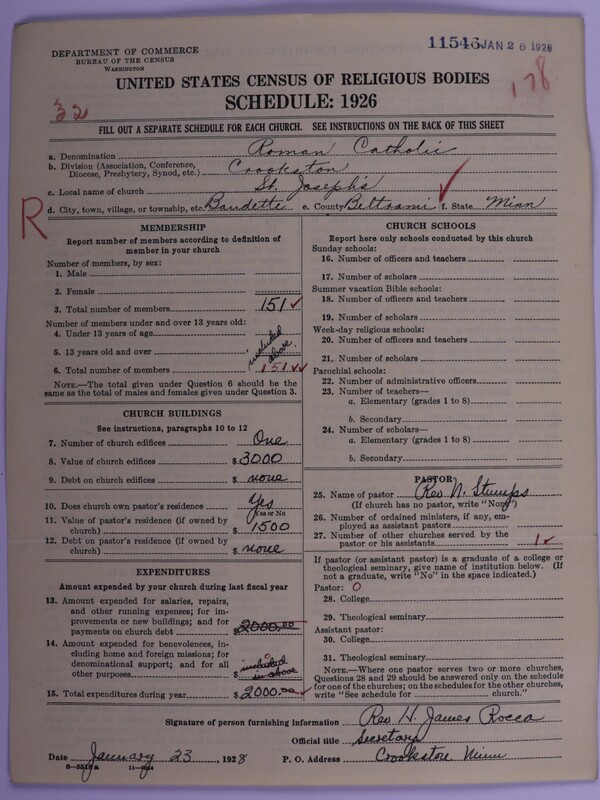 11546 JAN 26 1928
DEPARTMENT OF COMMERCE
BUREAU OF THE CENSUS
WASHINGTON
178
UNITED STATES CENSUS OF RELIGIOUS BODIES
32
SCHEDULE: 1926
FILL OUT A SEPARATE SCHEDULE FOR EACH CHURCH. SEE INSTRUCTIONS ON THE BACK OF THIS SHEET
a. Denomination Roman Catholic
b. Division (Association, Conference, Diocese, Presbytery, Synod, etc.) Crookston
c. Local name of church St. Joseph's
R
d. City, town, village, or township, etc. Baudette e. County Beltrami f. State Minn
MEMBERSHIP
Report number of members according to definition of
member in your church
Number of members, by sex:
1. Male
2. Female
3. Total number of members 151 ✓
Number of members under and over 13 years old:
4. Under 13 years of age
5. 13 years old and over included above
6. Total number of members 151 ✓✓
NOTE.—The total given under Question 6 should be
same as the total of males and females given under Question 3.
CHURCH BUILDINGS
See instructions, paragraphs 10 to 12
7. Number of church edifices One
8. Value of church edifices $ 3000
9. Debt on church edifices $ none
10. Does church own pastor's residence Yes
Yes or No
11. Value of pastor's residence (if owned by
church) $ 1500
12. Debt on pastor's residence (if owned by
church) $ none
EXPENDITURES
Amount expended by your church during last fiscal year
13. Amount expended for salaries, repairs,
and other running expenses; for im-
provements or new buildings; and for
payments on church debt $ 2000,00
14. Amount expended for benevolences, in-
cluding home and foreign missions; for
denominational support; and for all
other purposes $ included in above
15. Total expenditures during year $ 2000.00 ✓
CHURCH SCHOOLS
Report here only schools conducted by this church
Sunday schools:
16. Number of officers and teachers
17. Number of scholars
Summer vacation Bible schools:
18. Number of officers and teachers
19. Number of scholars
Week-day religious schools:
20. Number of officers and teachers
21. Number of scholars
Parochial schools:
22. Number of administrative officers
23. Number of teachers—
a. Elementary (grades 1 to 8)
b. Secondary
24. Number of scholars—
a. Elementary (grades 1 to 8)
b. Secondary
PASTOR
25. Name of pastor Rev N. Stumps
(If church has no pastor, write "None")
26. Number of ordained ministers, if any, em-
ployed as assistant pastors
27. Number of other churches served by the
pastor or his assistants 1 ✓
If pastor (or assistant pastor) is a graduate of a college or
theological seminary, give name of institution below. (If
not a graduate, write "No" in the space indicated.)
Pastor: 0
28. College
29. Theological seminary
Assistant pastor:
30. College
31. Theological seminary
NOTE.—Where one pastor serves two or more churches,
Questions 28 and 29 should be answered only on the schedule
for one of the churches; on the schedules for the other churches,
write "See schedule for church."
Signature of person furnishing information Rev H. James Rocca
Official title Secretary
Date January 23, 1928 P. O. Address Crookston Minn